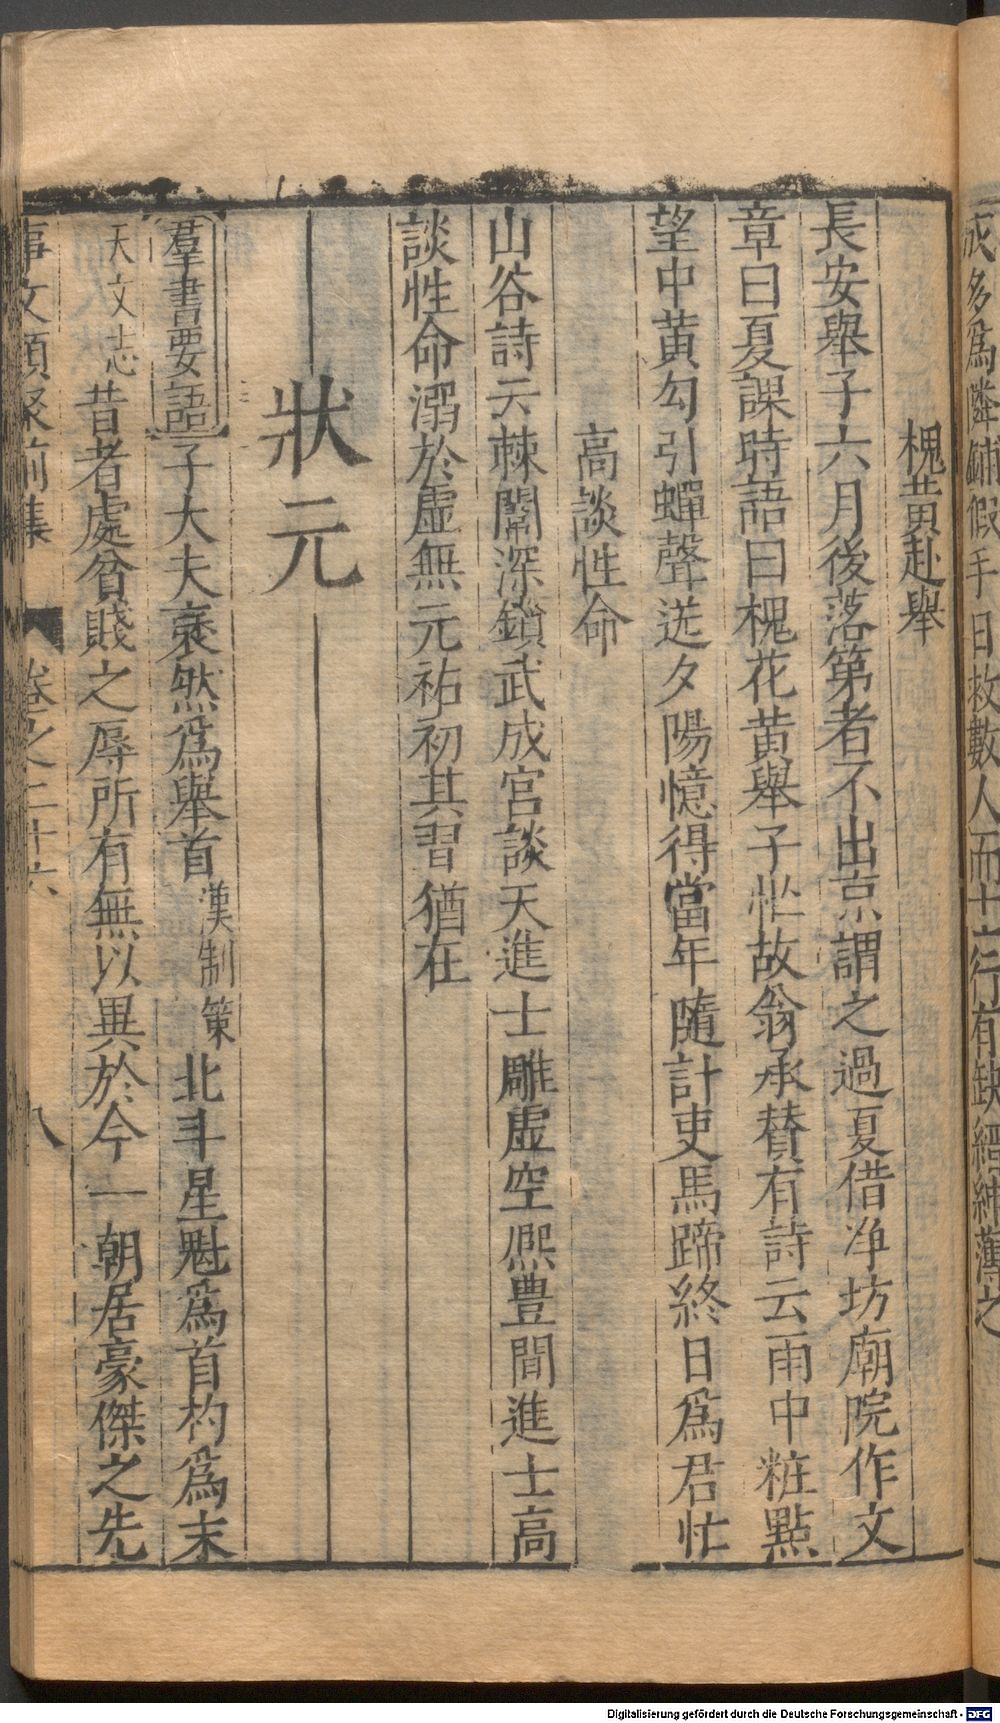 戌多爲隣鋪假手日救數人而士行有缺縉紳薄之
槐黄赴舉
長安舉子六月後落第者不出京謂之過夏借净坊廟院作文
章曰夏課時語曰槐花黄舉子忙故翁承賛有詩云雨中粧點
望中黄勾引蟬聲送夕陽憶得當年隨計吏馬蹄終日爲君忙
高談性命
山谷詩云棘闈深鎖武成宫談天進士雕虚空熈豊間進士高
談性命溺於虚無元祐初其習猶在
狀元
羣書要語子大夫裦然爲舉首漢制策北斗星魁爲首杓爲末
天文志昔者處貧賤之辱所有無以異於今一朝居豪傑之先
事文類聚前集 卷之二十六 八
Digitalisierung gefördert durch die Deutsche Forschungsgemeinschaft - DFG